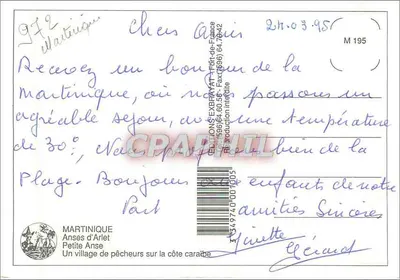 972
Martinique
24.03.95
Chers Amis
M 195
Recevez un bonjour de la
Martinique, où nous passons un
agréable séjour, avec une température
de 30°, Nous bien de la
Plage. Bonjours aux enfants de notre
Part
amitiés Sincères
Ginette
Gérard
MARTINIQUE
Anses d'Arlet
Petite Anse
Un village de pêcheurs sur la côte caraïbe
EDITIONS EXBRAYAT Fort-de-France
Reproduction interdite
3 349740 001005
CPAPHIL